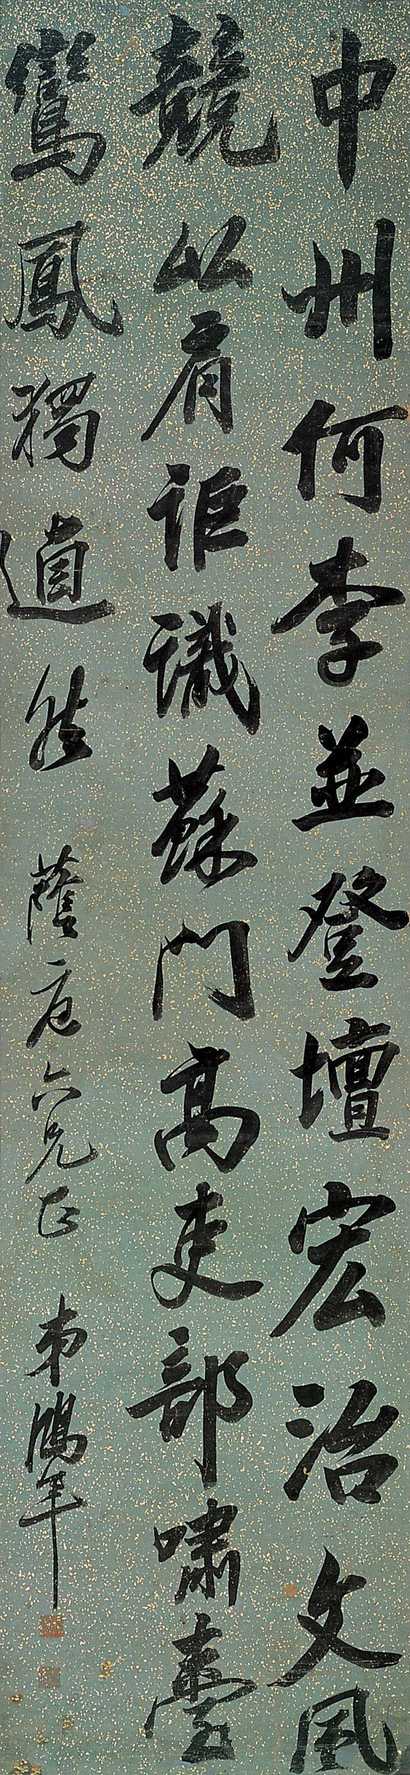 中州何李並登壇宏治文風
競比肩詎識蘇門高吏部嘯臺
鸞鳳獨逌然 蔭庭六兄正 弟鵬年